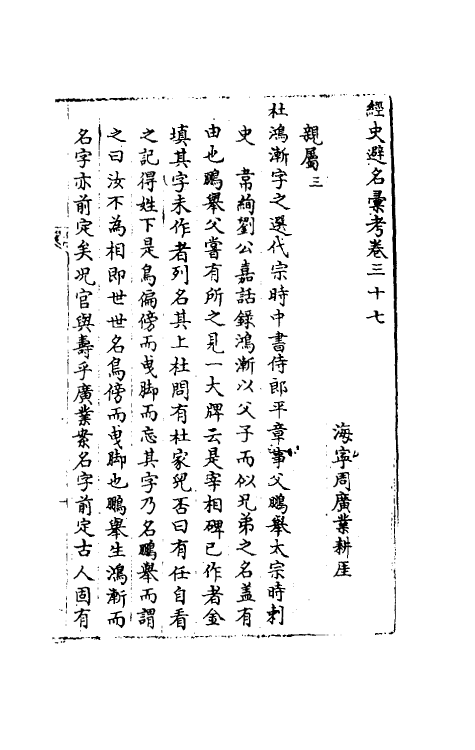 經史避名彙考卷三十七
海寧周廣業耕厓
親屬三
杜鴻漸字之選代宗時中書侍郎平章事父鵬舉太宗時刺
史 韋絢劉公嘉話錄鴻漸以父子而似兄弟之名盖有
由也鵬舉父嘗有所之見一大牌云是宰相碑已作者金
填其字未作者列名其上杜問有杜家兒否曰有任自看
之記得姓下是鳥偏傍而曳脚而忘其字乃名鵬舉而謂
之曰汝不為相即世世名鳥傍而曳脚也鵬舉生鴻漸而
名字亦前定矣况官與壽乎廣業案名字前定古人固有